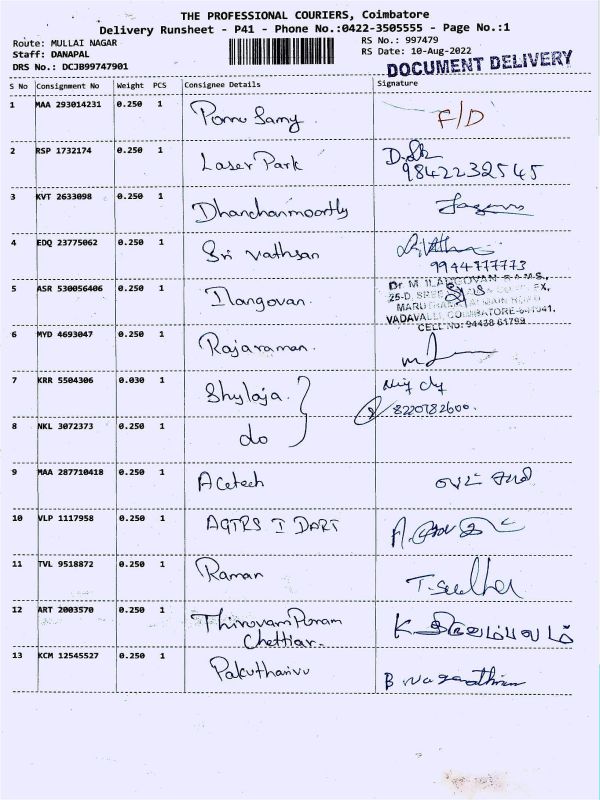 THE PROFESSIONAL COURIERS, Coimbatore
Delivery Runsheet - P41 - Phone No.:0422-3505555 - Page No.:1
Route: MULLAI NAGAR
Staff: DANAPAL
DRS No.: DCJB99747901
RS No.: 997479
RS Date: 10-Aug-2022
DOCUMENT DELIVERY
S No Consignment No Weight PCS Consignee Details Signature
1 MAA 293014231 0.250 1 Ponnu Samy F/D
2 RSP 1732174 0.250 1 Laser Park
9842232545
3 KVT 2633098 0.250 1 Dhanchanmoorthy
4 EDQ 23775062 0.250 1 Sri Vathsan
9944777773
5 ASR 530056406 0.250 1 Ilangovan.
Dr. M. ILANGOVAN
25-D, SREE
VADAVALLI, COIMBATORE-641041.
CELL NO: 94438 61799
6 MYD 4693047 0.250 1 Rajaraman.
7 KRR 5504306 0.030 1 Shylaja.
8220782600.
8 NKL 3072373 0.250 1 do
9 MAA 287710418 0.250 1 Acetech
10 VLP 1117958 0.250 1 AGTRS I DART
11 TVL 9518872 0.250 1 Raman
12 ART 2003570 0.250 1 ThiruvamPuram
Chettiar.
13 KCM 12545527 0.250 1 Pakutharivu